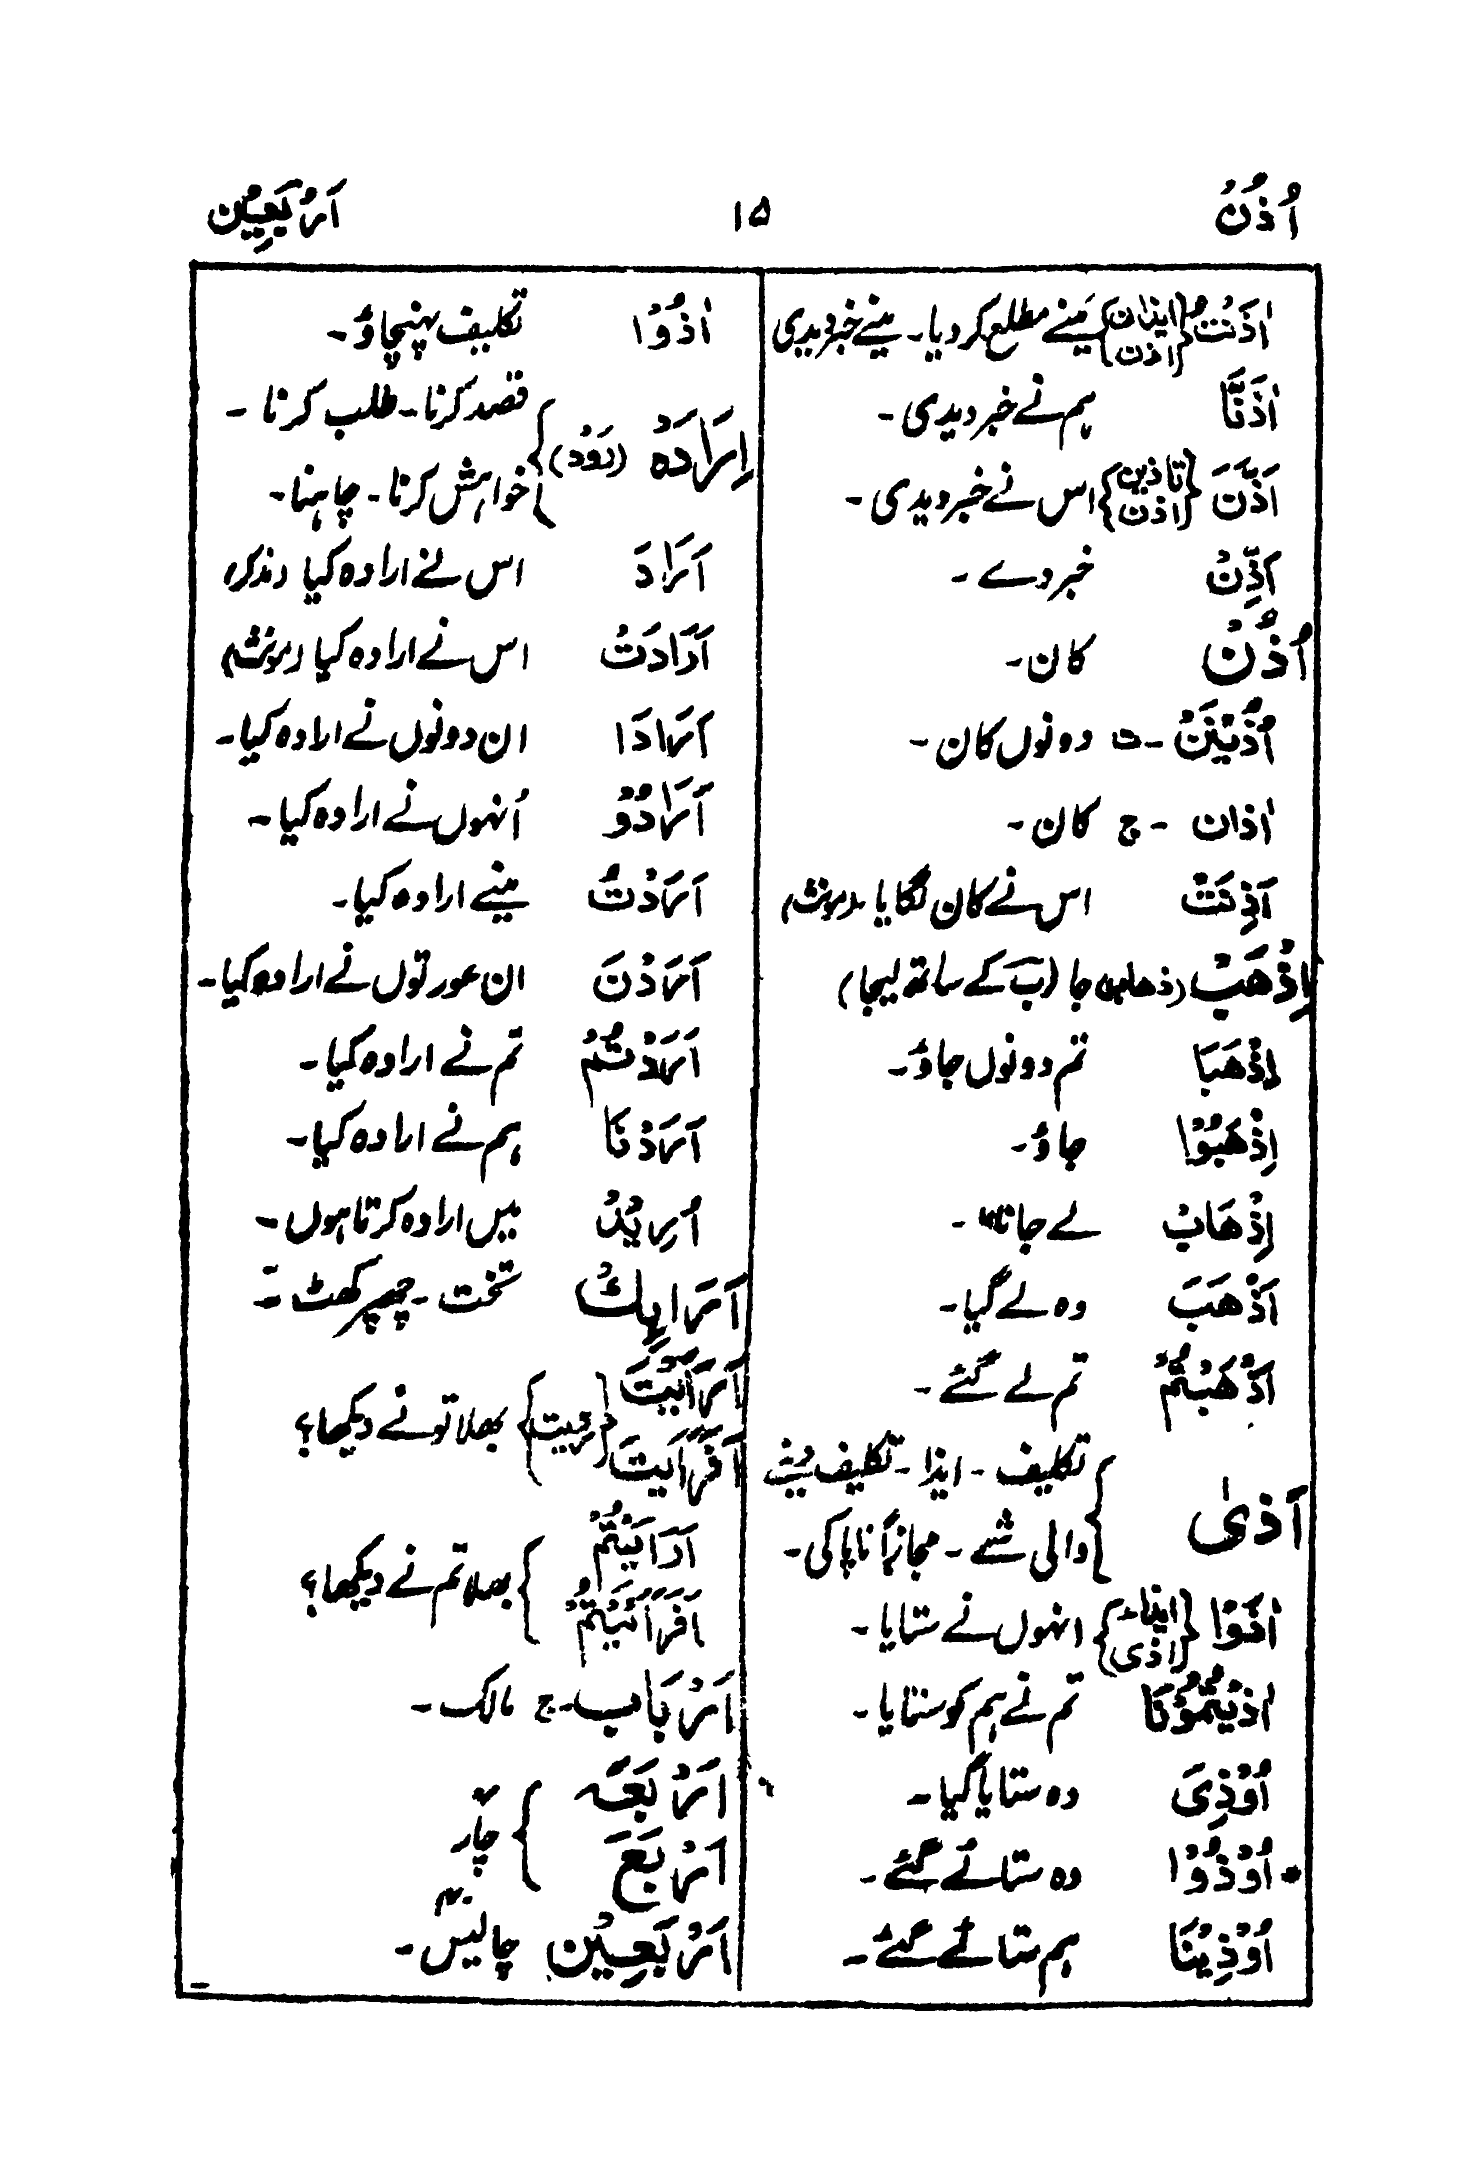 اُذُنٌ ۱۵ اَرْبَعِيْن
اٰذَنْتُ {ايذان اذن} مَینے مطلع کردیا۔ مینے خبردیدی
اٰذَنَّا ہم نے خبردیدی۔
اَذَّنَ {تاذين اذن} اس نے خبردیدی۔
اَذِّنْ خبردے۔
اُذُنٌ کان۔
اُذُنَيْنِ ۔ ث دونوں کان۔
اٰذان ۔ ج کان۔
اَذِنَتْ اس نے کان لگایا (مونث)
اِذْهَبْ (ذهاب) جا (بَ کے ساتھ لیجا)
اِذْهَبَا تم دونوں جاؤ۔
اِذْهَبُوْا جاؤ۔
اِذْهَابْ لے جانا۔
اَذْهَبَ وہ لے گیا۔
اَذْهَبْتُمْ تم لے گئے۔
اَذىٰ { تکلیف ۔ ایذا ۔ تکلیف دینے
والی شے ۔ مجازاً ناپاکی۔
اٰذَوْا {ايذاء اذى} انہوں نے ستایا۔
اٰذَيْتُمُوْنَا تم نے ہم کو ستایا۔
اُوْذِىَ وہ ستایا گیا۔
اُوْذُوْا وہ ستائے گئے۔
اُوْذِيْنَا ہم ستائے گئے۔
اٰذُوْا تکلیف پہنچاؤ۔
اِرَادَہ (رَوْد) { قصد کرنا۔ طلب کرنا ۔
خواہش کرنا۔ چاہنا۔
اَرَادَ اس نے ارادہ کیا (مذکر)
اَرَادَتْ اس نے ارادہ کیا (مونث)
اَرَادَا ان دونوں نے ارادہ کیا۔
اَرَادُوْ اُنہوں نے ارادہ کیا۔
اَرَدْتُّ مینے ارادہ کیا۔
اَرَدْنَ ان عورتوں نے ارادہ کیا۔
اَرَدْتُمْ تم نے ارادہ کیا۔
اَرَدْنَا ہم نے ارادہ کیا۔
اُرِيْدُ میں ارادہ کرتا ہوں۔
اَرَايِكُ تخت ۔ چھپر کھٹ ۔
اَرَاَيْتَ
اَفَرَاَيْتَ {رءيت} بھلا تو نے دیکھا؟
اَرَاَيْتُمْ
اَفَرَاَيْتُمْ } بھلا تم نے دیکھا؟
اَرْبَاب ۔ ج مالک ۔
اَرْبَعَہ
اَرْبَعَ } چار
اَرْبَعِيْن چالیس۔